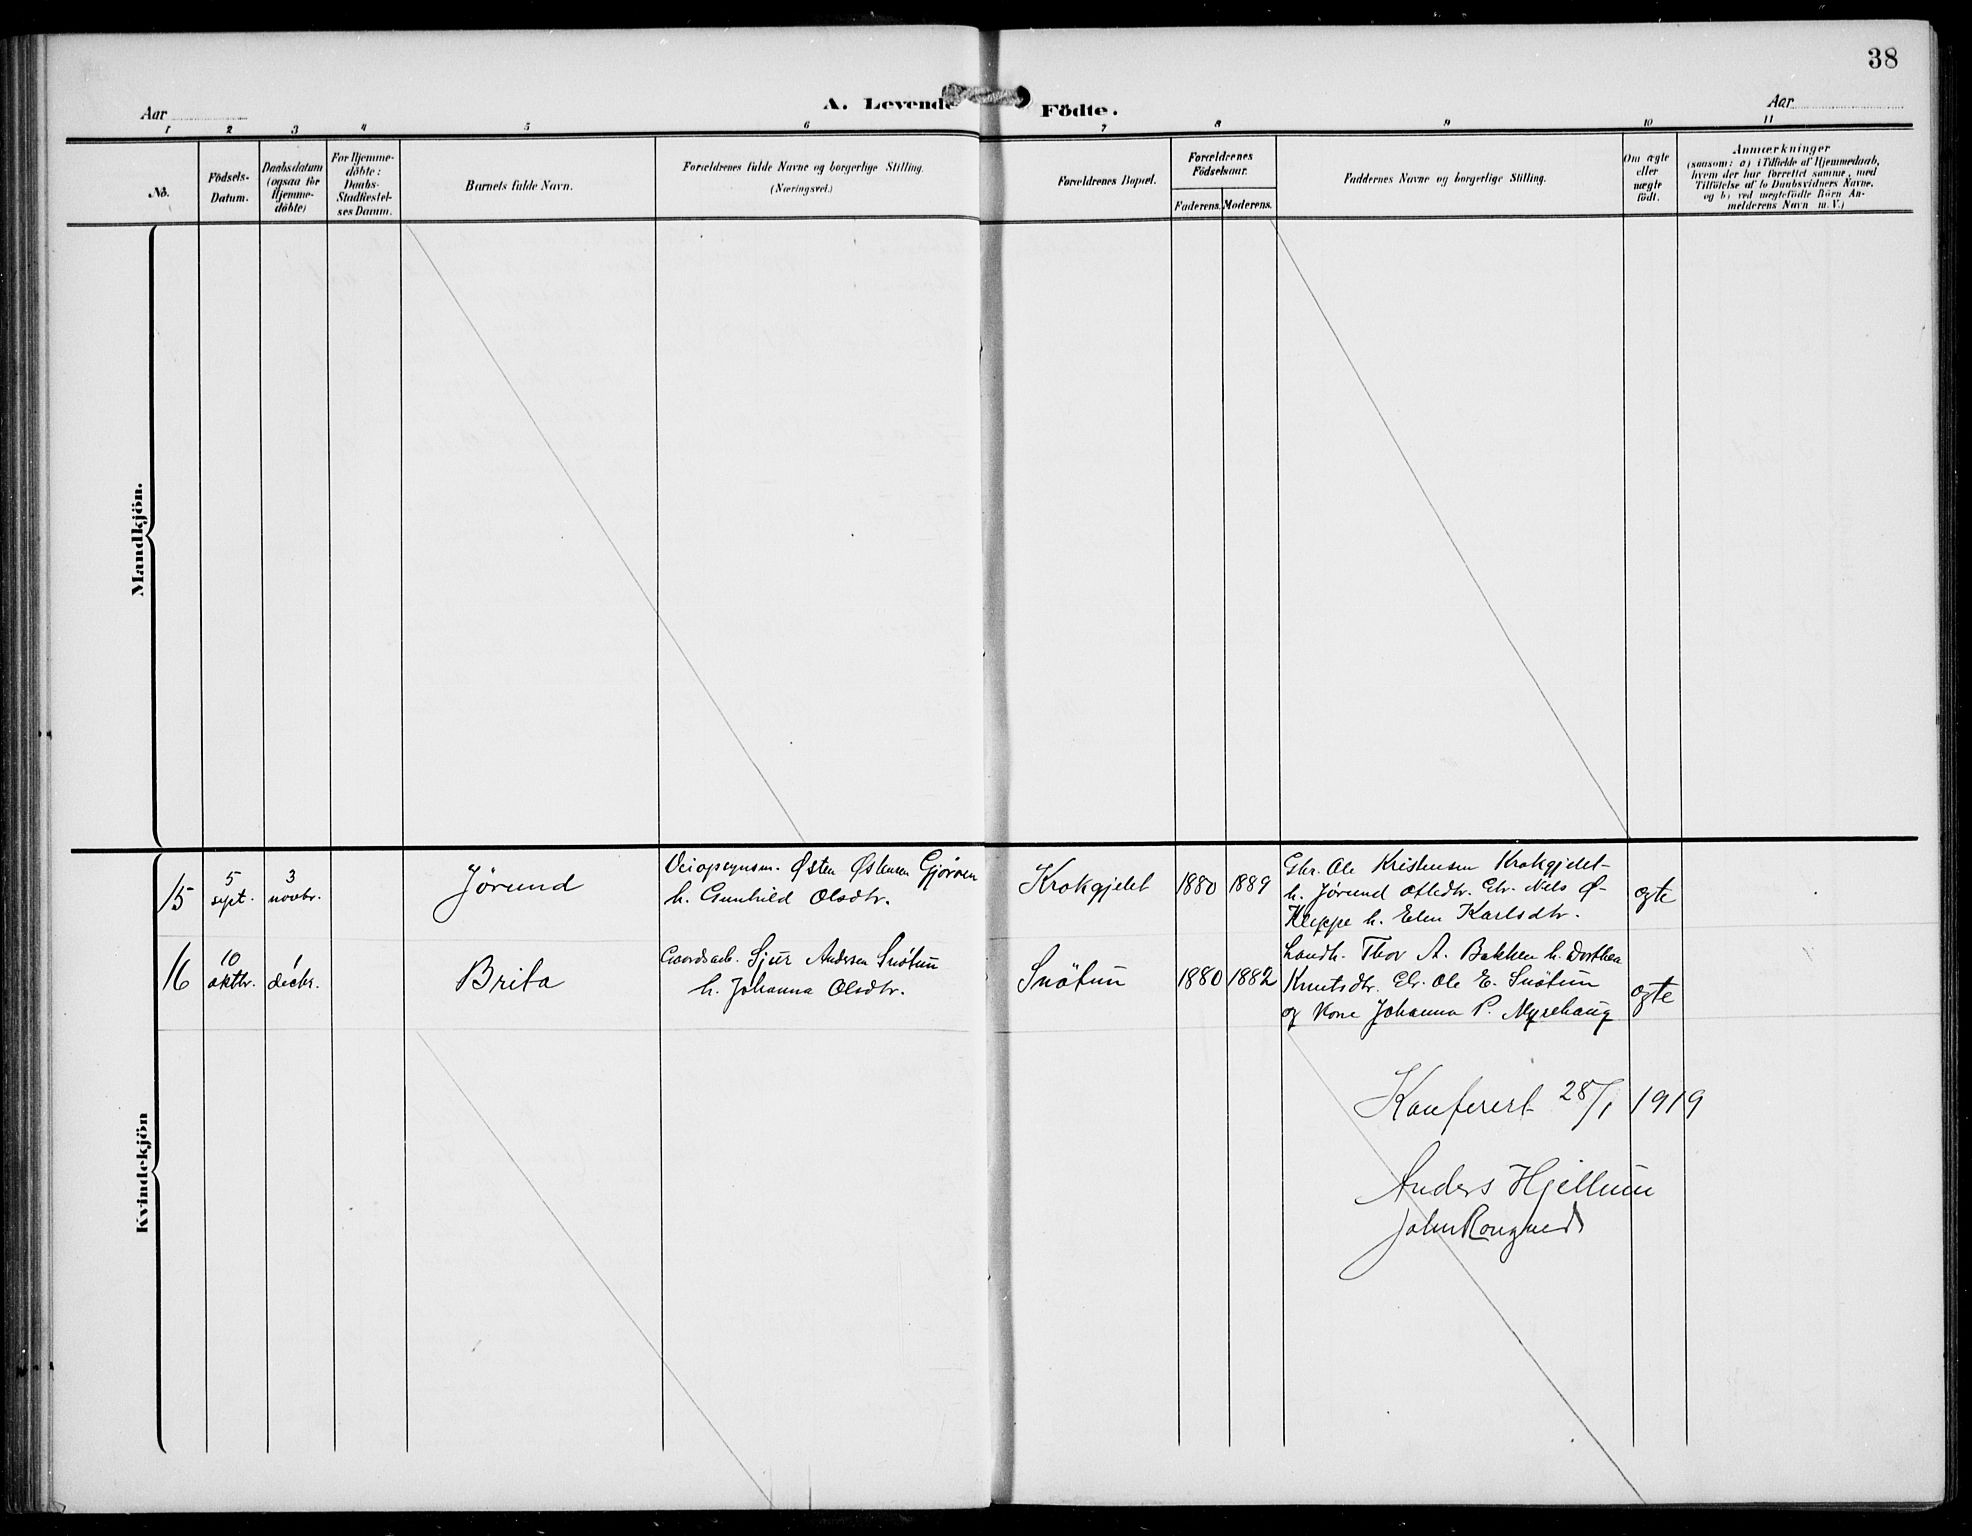 38
Aar
A. Levende Födte.
Aar
1 2 3 4 5 6 7 8 9 10 11
No.
Födsels-
Datum.
Daabsdatum
(ogsaa for
Hjemme-
döbte)
For Hjemme-
döbte:
Daabs-
Stadfæstel-
ses Datum.
Barnets fulde Navn.
Forældrenes fulde Navne og borgerlige Stilling.
(Næringsvei.)
Forældrenes Bopæl.
Forældrenes
Födselsaar.
Faderens. Moderens.
Faddernes Navne og borgerlige Stilling.
Om ægte
eller
uægte
födt.
Anmærkninger
(saasom: a) i Tilfælde af Hjemmedaab,
hvem der har forrettet samme, med
Tilföielse af to Daabsvidners Navne,
og b) ved uægtefödte Börn An-
melderens Navn m. V.)
Mandkjön.
Kvindekjön
15
5
sept.
3
novbr.
Jørund
Østen Østensen Gjøroen
h. Gunhild Olsdtr.
Krokgjelet
1880 1889
Gbr. Ole Kristensen Krokgjelet
h. Jørund Gbr. Nels Ø-
Kleppe h. Elen Karlsdtr.
egte
16
10
oktbr.
1
decbr.
Brita
Gaardsarb. Sjur Andersen Snötun
h. Johanna Olsdtr.
Snötun
1880 1882
Landh. Thov A. Bakken h. Dorthea
Knutsdtr. Gbr. Ole E. Snötun
og Kone Johanna P. Myrehaug
egte
Konferert 28/1 1919
Anders Hjellum
John